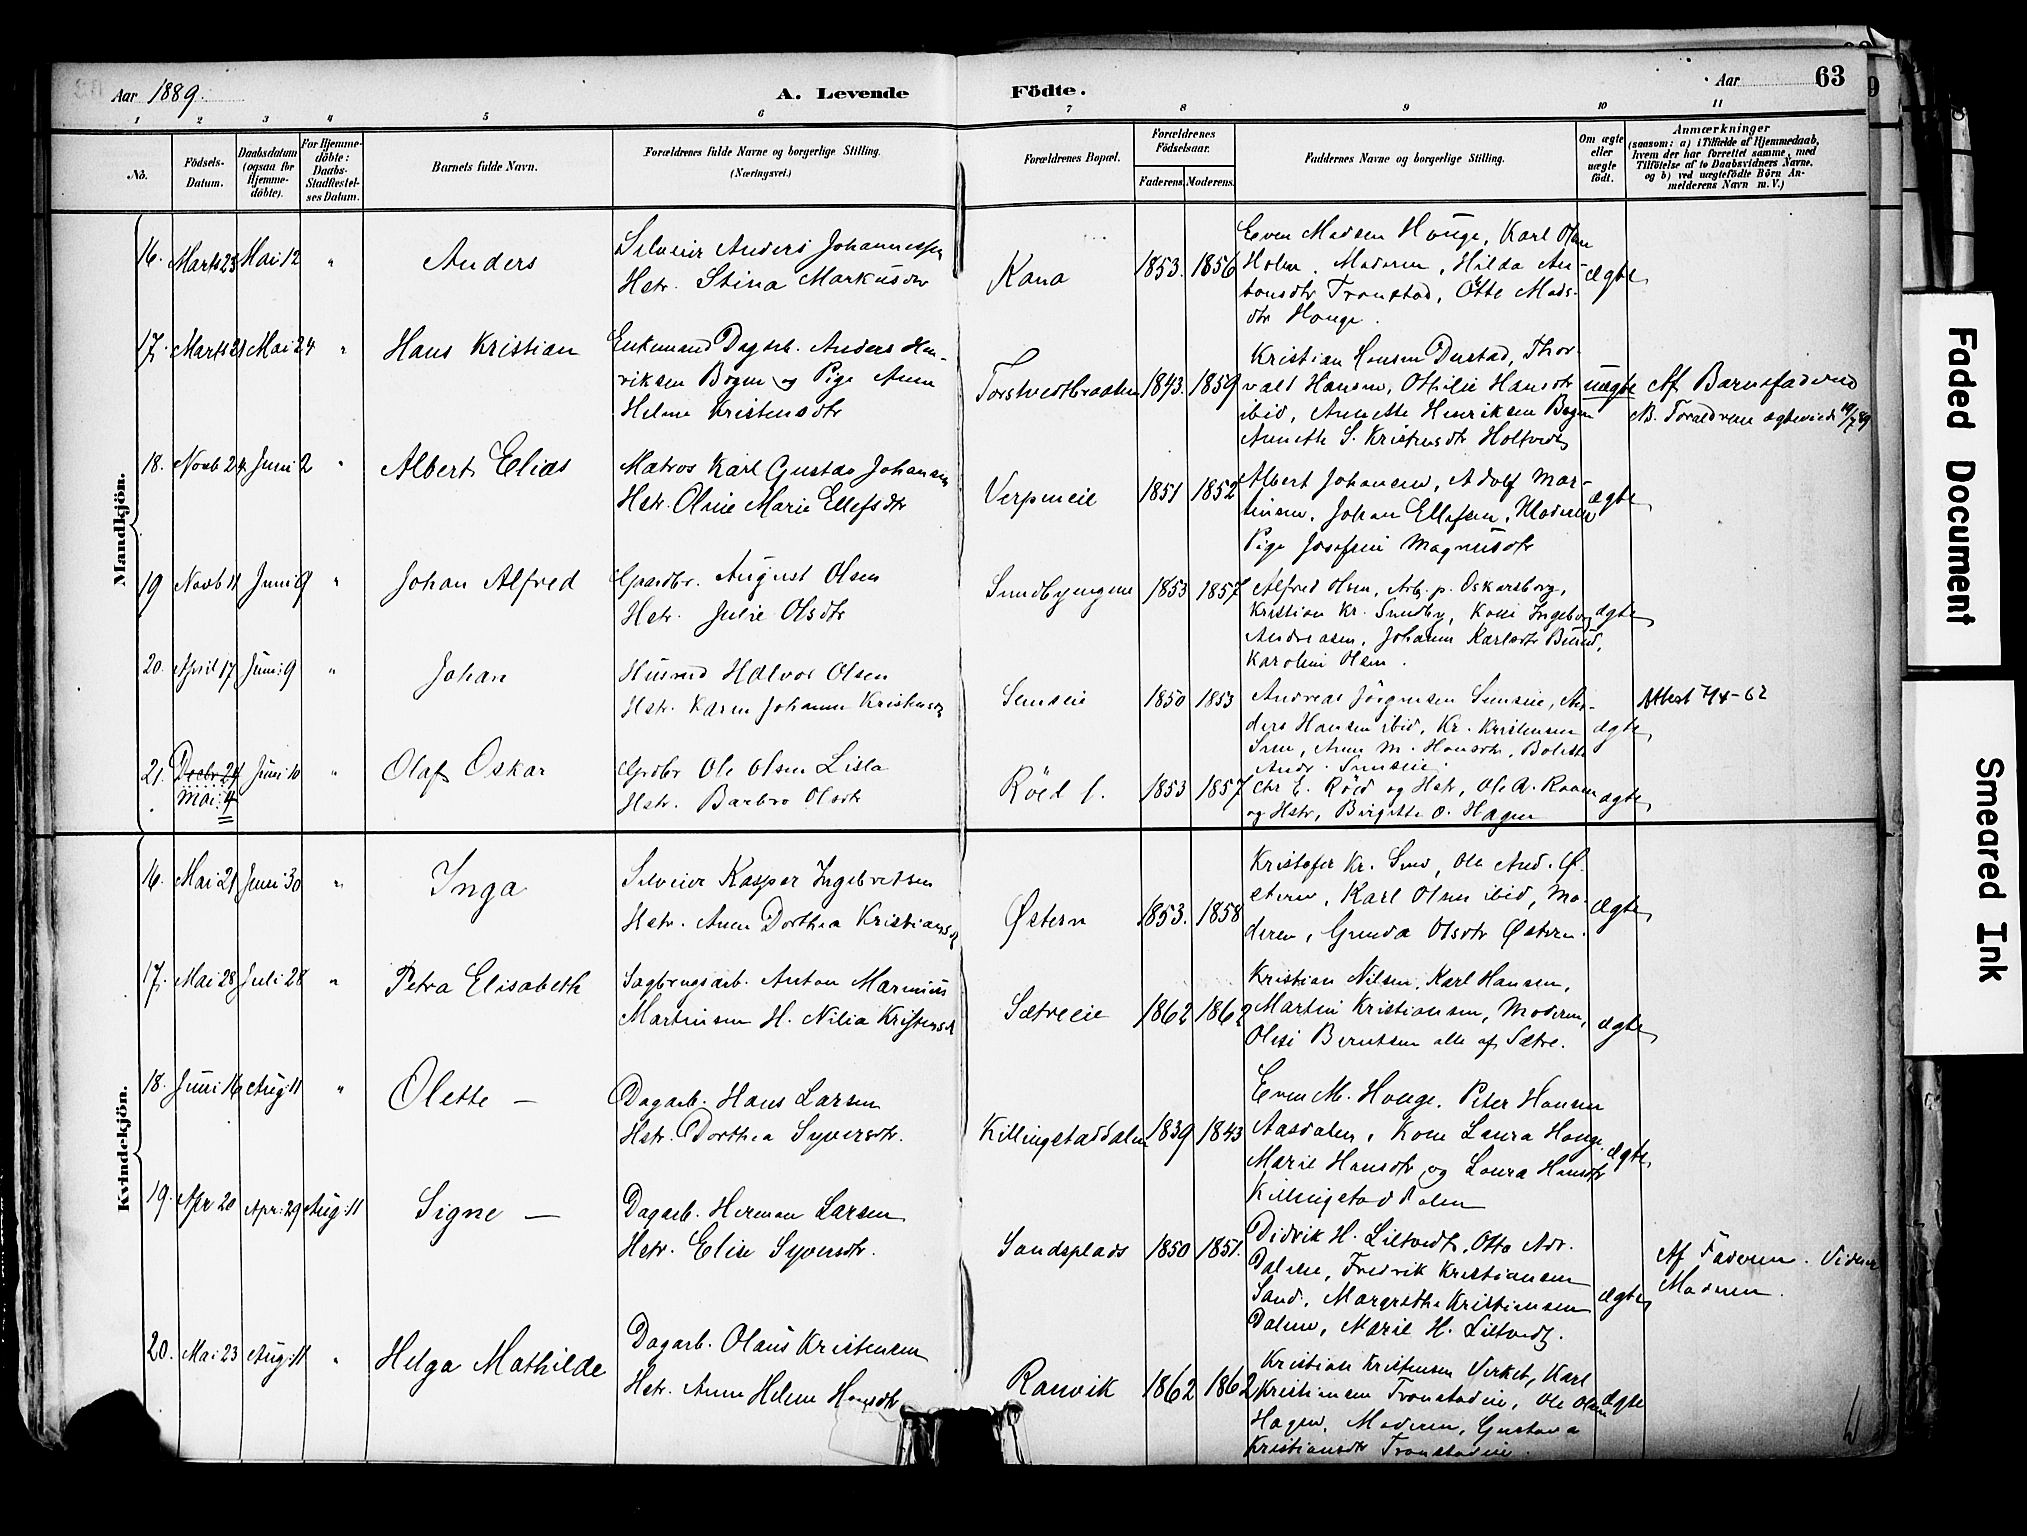 Aar 1889.
A. Levende Födte.
Aar 63
1 2 3 4 5 6 7 8 9 10 11
No.
Födsels-Datum.
Daabsdatum (ogsaa for Hjemmedöbte).
For Hjemmedöbte: Daabs-Stadfæstelses Datum.
Barnets fulde Navn.
Forældrenes fulde Navne og borgerlige Stilling.
(Næringsvei.)
Forældrenes Bopæl.
Forældrenes Födselsaar.
Faderens. Moderens.
Faddernes Navne og borgerlige Stilling.
Om ægte eller uægte födt.
Anmærkninger
(saasom: a) i Tilfælde af Hjemmedaab,
hvem der har forrettet samme, med
Tilföielse af to Daabsvidners Navne,
og b) ved uægtefödte Börn Anmelderens Navn m. V.)
Mandkjön.
16. Marts 23 Mai 12 " Anders
Selveier Anders Johannessen
Hstr. Stina Markusdtr
Kana 1853. 1856
Even Madsen Houge, Karl Olsen
Holm, Moderen, Hilda An-
tonsdtr Tronstad, Otte Mads-
dtr Houge.
ægte
17. Marts 21 Mai 24 " Hans Kristian
Enkemand Dagarb. Anders Hen-
riksen Bogen og Pige Anne
Helene Kristensdtr
Torstvedtbraaten 1843. 1859
Kristian Hansen Dustad, Thor-
vald Hansen, Othilie Hansdtr
ibid, Annette Henriksen Bogen
Annette S. Kristensdtr Holtvedt
uægte
Af Barnefaderen
NB. Forældrene ægteviede
18. Novb 24 Juni 2 " Albert Elias
Matros Karl Gustav Johansen
Hstr. Oline Marie Ellefsdtr
Verpeneie 1851 1852
Albert Johansen, Adolf Mar-
tinsen, Johan Ellefsen, Moderen
Pige Josefine Magnusdtr
ægte
19 Novb 11 Juni 9 " Johan Alfred
Gaardbr. August Olsen
Hstr. Julie Olsdtr
Sundbyengene 1853 1857
Alfred Olsen, Arb. p. Oskarsborg,
Kristian Kr. Sundby, Kone Ingeborg
Andreasen, Johanne Karlsdtr
Karoline Olsen.
ægte
20. April 17 Juni 9 " Johan
Husmd Halvor Olsen
Hstr. Karen Johanne Kristensdtr
Semseie 1850 1853
Andreas Jörgensen Semseie, An-
ders Hansen ibid, Kr. Kristensen
Sem, Anne M. Hansdtr, Bolette
Andr. Semseie.
ægte
Attest
21. Decbr 24 Juni 10 " Olaf Oskar
Mai 4
Grdbr Ole Olsen Lisla
Hstr. Barbro Olsdtr
Röed 1853 1857
Chr E. Röed og Hstr, Ole A. Raaen
og Hstr, Birgitte O. Hagen
ægte
Kvindekjön.
16. Mai 21 Juni 30 " Inga
Selveier Kasper Ingebretsen
Hstr. Anne Dorthea Kristiansdtr
Østern 1853. 1858
Kristofer Kr. Sem, Ole And. Ø-
stern, Karl Olsen ibid, Mo-
deren, Gunda Olsdtr Østern.
ægte
17. Mai 28 Juli 28 " Petra Elisabeth
Sagbrugsarb. Anton Marinius
Martinsen H. Nilia Kristensdtr
Sætreeie 1862 1862
Kristian Nilsen, Karl Hansen,
Martin Kristiansen, Moderen,
Olise Berntsen alle af Sætre.
ægte
18. Juni 16 Aug: 11 " Olette —
Dagarb. Hans Larsen
Hstr. Dorthea Syversdtr.
Killingstaddalen 1839 1843
Even M. Houge, Peter Hansen
Aasdalen, Kone Laura Houge
Marie Hansdtr og Laura Hansdtr
Killingstaddalen
ægte
19. Apr 20 Apr: 29 Aug: 11 Signe —
Dagarb. Herman Larsen
Hstr. Elise Syversdtr.
Sandsplads 1850 1851.
Didrik H. Liltvedt, Otto Adr.
Dalene, Fredrik Kristiansen
Sand, Margrethe Kristiansen
Dalene, Marie H. Liltvedt.
ægte
Af Faderen. Vidner
Moderen.
20. Mai 23 Aug: 11 " Helga Mathilde
Dagarb. Olaus Kristensen
Hstr. Anne Helene Hansdtr
Ranvik 1862 1862
Kristian Kristensen Virket, Karl
Kristiansen Tronstadeie, Ole Olsen
Hagen, Moderen, Gustava
Kristiansdtr Tronstadeie.
ægte
Faded Document
Smeared Ink